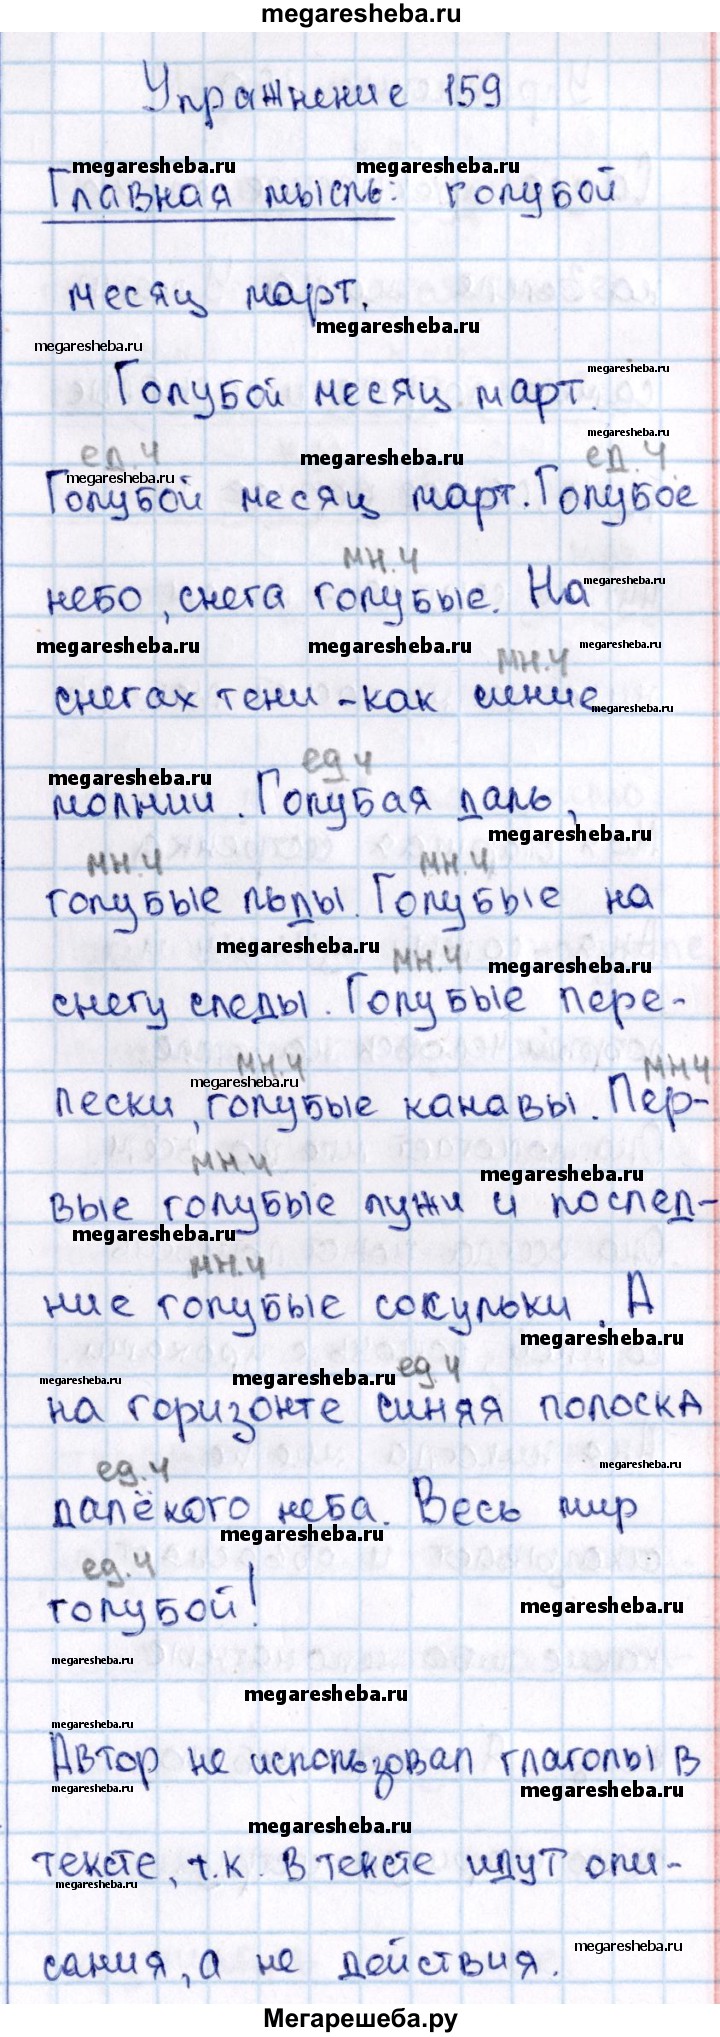 megaresheba.ru
Упражнение 159
megaresheba.ru megaresheba.ru
Главная мысль: голубой
месяц март.
megaresheba.ru
megaresheba.ru
Голубой месяц март.
megaresheba.ru
megaresheba.ru
ед.ч megaresheba.ru ед.ч.
megaresheba.ru
Голубой месяц март. Голубое
мн.ч
небо, снега голубые. На
megaresheba.ru
megaresheba.ru megaresheba.ru megaresheba.ru
мн.ч
снегах тени - как синие
megaresheba.ru
ед ч
megaresheba.ru
молнии. Голубая даль,
megaresheba.ru
мн.ч мн.ч
голубые льды. Голубые на
megaresheba.ru
мн.ч megaresheba.ru
снегу следы. Голубые пере-
мн.ч мн ч
megaresheba.ru
лески, голубые канавы. Пер-
мн.ч megaresheba.ru
вые голубые лужи и послед-
megaresheba.ru
мн.ч
ние голубые сосульки. А
megaresheba.ru
megaresheba.ru megaresheba.ru ед.ч
на горизонте синяя полоска
ед.ч megaresheba.ru
далёкого неба. Весь мир
megaresheba.ru
ед.ч
голубой!
megaresheba.ru
megaresheba.ru
megaresheba.ru
megaresheba.ru
Автор не использовал глаголы в
megaresheba.ru megaresheba.ru
megaresheba.ru
тексте, т.к. в тексте идут опи-
megaresheba.ru
megaresheba.ru
сания, а не действия.
Мегарешеба.ру